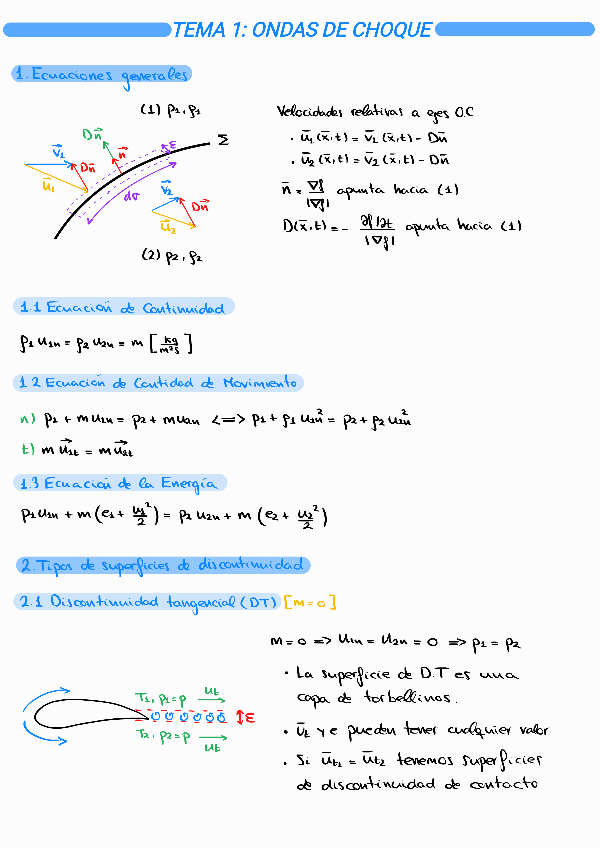 TEMA 1: ONDAS DE CHOQUE
1. Ecuaciones generales
(1) p₁, ρ₁
Σ
Dn⃗
n⃗
ε
v⃗₁
Dn⃗
u⃗₁
dσ
v⃗₂
Dn⃗
u⃗₂
(2) p₂, ρ₂
Velocidades relativas a ejes O.C
· ū₁(x̄,t) = v̄₁(x̄,t) - Dn̄
· ū₂(x̄,t) = v̄₂(x̄,t) - Dn̄
n̄ = ∇f / |∇f| apunta hacia (1)
D(x̄,t) = - ∂f/∂t / |∇f| apunta hacia (1)
1.1 Ecuación de Continuidad
ρ₁u₁ₙ = ρ₂u₂ₙ = m [kg/m²s]
1.2 Ecuación de Cantidad de Movimiento
n) p₁ + mu₁ₙ = p₂ + mu₂ₙ <=> p₁ + ρ₁u₁ₙ² = p₂ + ρ₂u₂ₙ²
t) m u⃗₁t = m u⃗₂t
1.3 Ecuación de la Energía
p₁u₁ₙ + m (e₁ + u₁²/2) = p₂u₂ₙ + m (e₂ + u₂²/2)
2. Tipos de superficies de discontinuidad
2.1 Discontinuidad tangencial (DT) [m=0]
m = 0 => u₁ₙ = u₂ₙ = 0 => p₁ = p₂
· La superficie de D.T es una
capa de torbellinos.
· ūt y e pueden tener cualquier valor
· Si ūt₁ = ūt₂ tenemos superficies
de discontinuidad de contacto
T₁, p₁=p ut
ε
T₂, p₂=p ut